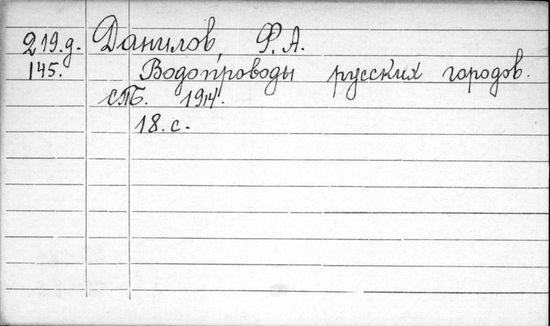 219.д. Данилов, Ф.А.
145. Водопроводы русских городов.
1914.
18.с.